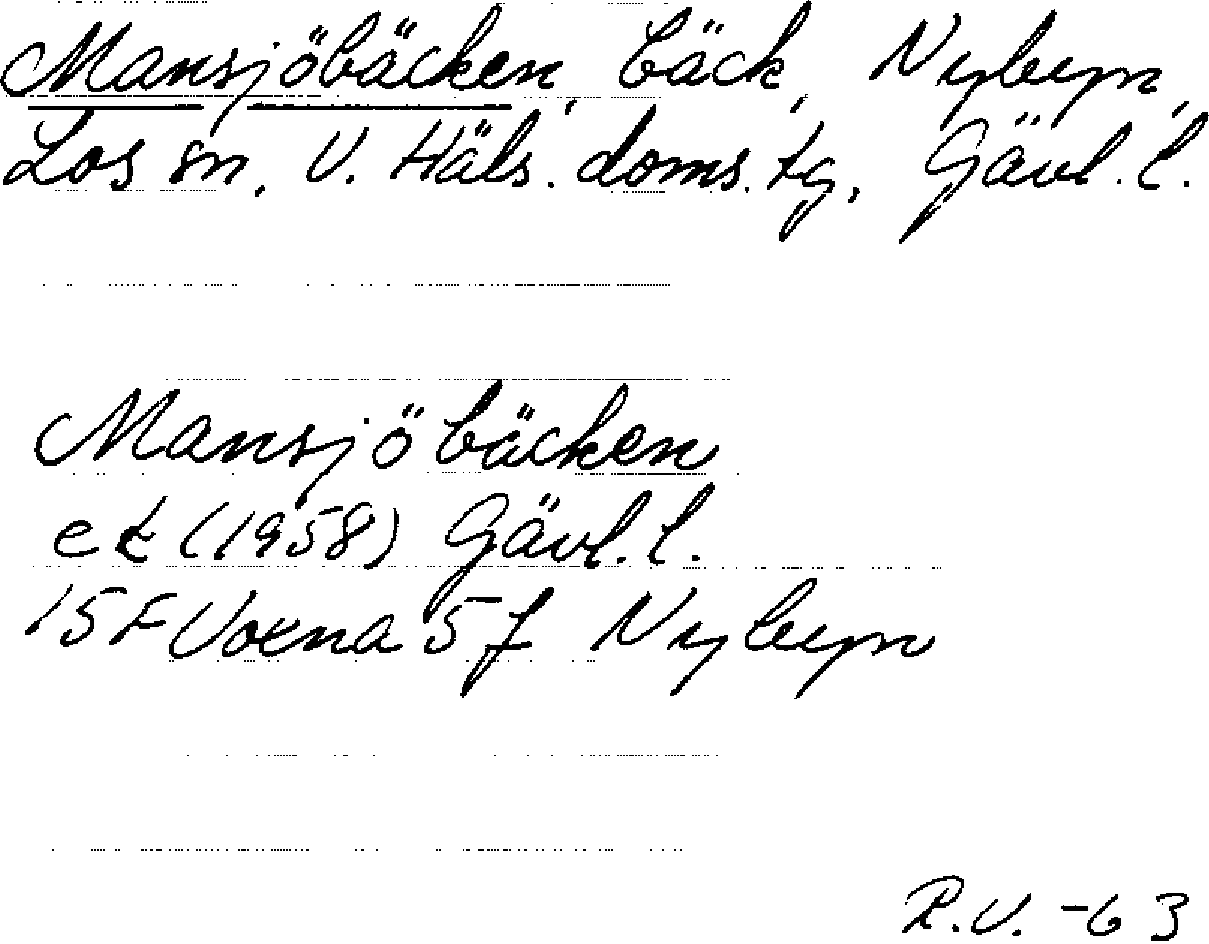 Mansjöbäcken, bäck, Nybyn,
Los sn, V. Häls. doms. tg, Gävl. l.
Mansjöbäcken
ek (1958) Gävl. l.
15F Voxna 5f Nybyn
R.V. -63